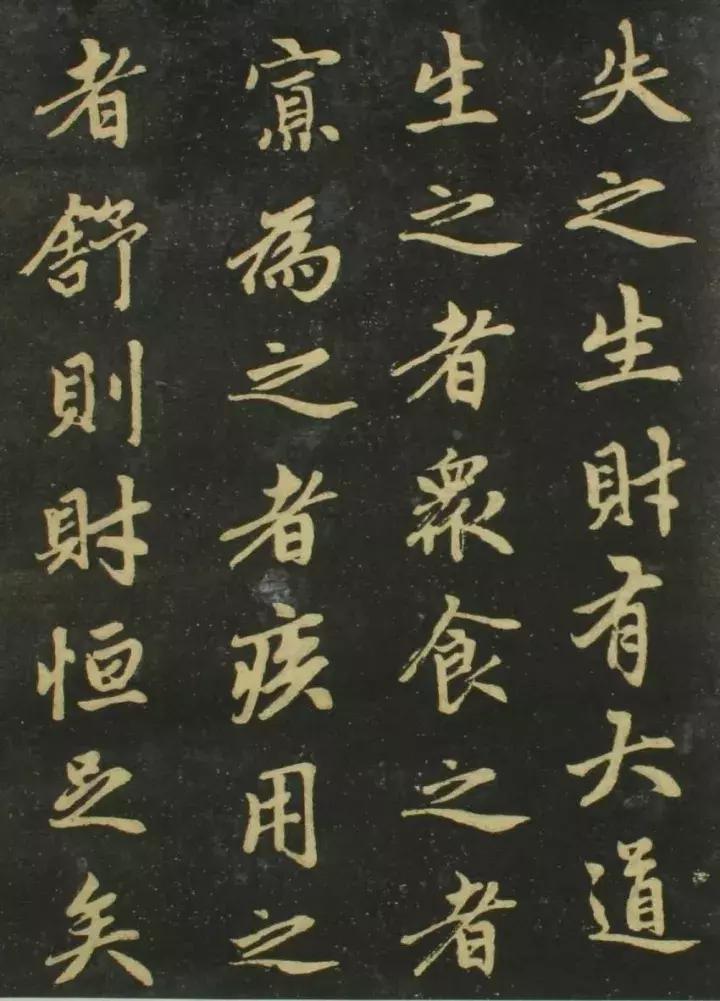 失之生財有大道
生之者眾食之者
寡為之者疾用之
者舒則財恒足矣